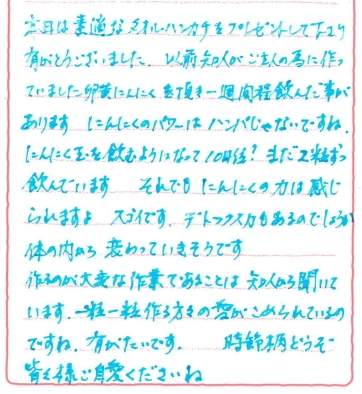 当日は素適なタオルハンカチをプレゼントして下さり
有がとうございました。以前知人がご主人の為に作っ
ていました卵黄にんにくを頂き一週間程飲んだ事が
あります にんにくのパワーはハンパじゃないですね。
にんにく玉を飲むようになって10日位? まだ2粒ずつ
飲んでいます それでもにんにくの力は感じ
られますよ スゴイです。デトックス力もあるのでしょうか
体の内から変わっていきそうです
作るのが大変な作業であることは知人から聞いて
います。一粒一粒作る方々の愛がこめられているの
ですね。有がたいです。 時節柄どうぞ
皆々様ご自愛くださいね